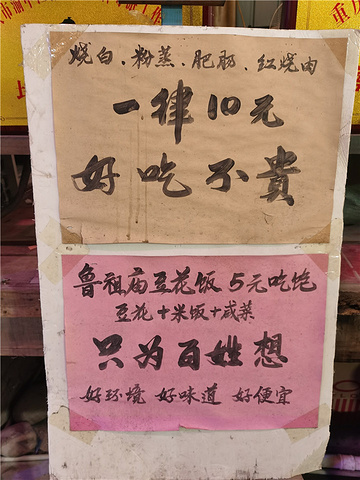 烧白、粉蒸、肥肠、红烧肉
一律10元
好吃不貴
鲁祖庙豆花饭 5元吃饱
豆花+米饭+咸菜
只为百姓想
好环境 好味道 好便宜